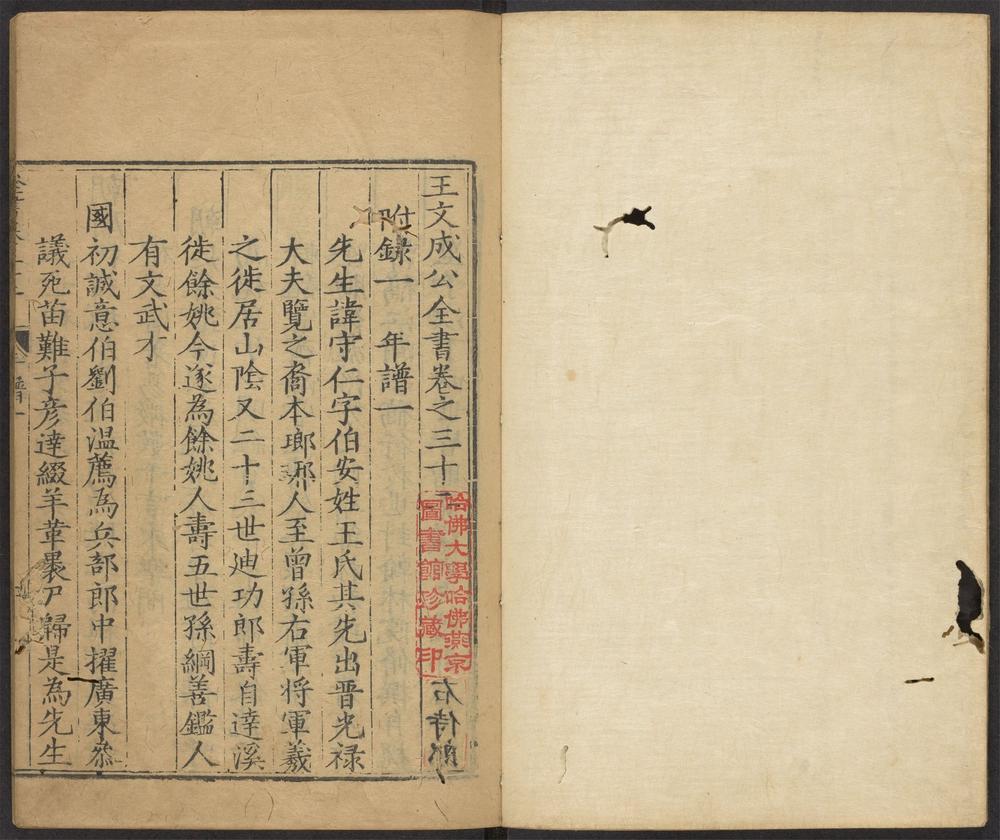 王文成公全書卷之三十二
附錄一 年譜一
先生諱守仁字伯安姓王氏其先出晉光祿
大夫覽之裔本瑯琊人至曾孫右軍將軍羲
之徙居山陰又二十三世迪功郎壽自達溪
徙餘姚今遂為餘姚人壽五世孫綱善鑑人
有文武才
國初誠意伯劉伯溫薦為兵部郎中擢廣東叅
議死苗難子彥達綴羊革褁尸歸是為先生
哈佛大學哈佛燕京
圖書館珍藏印